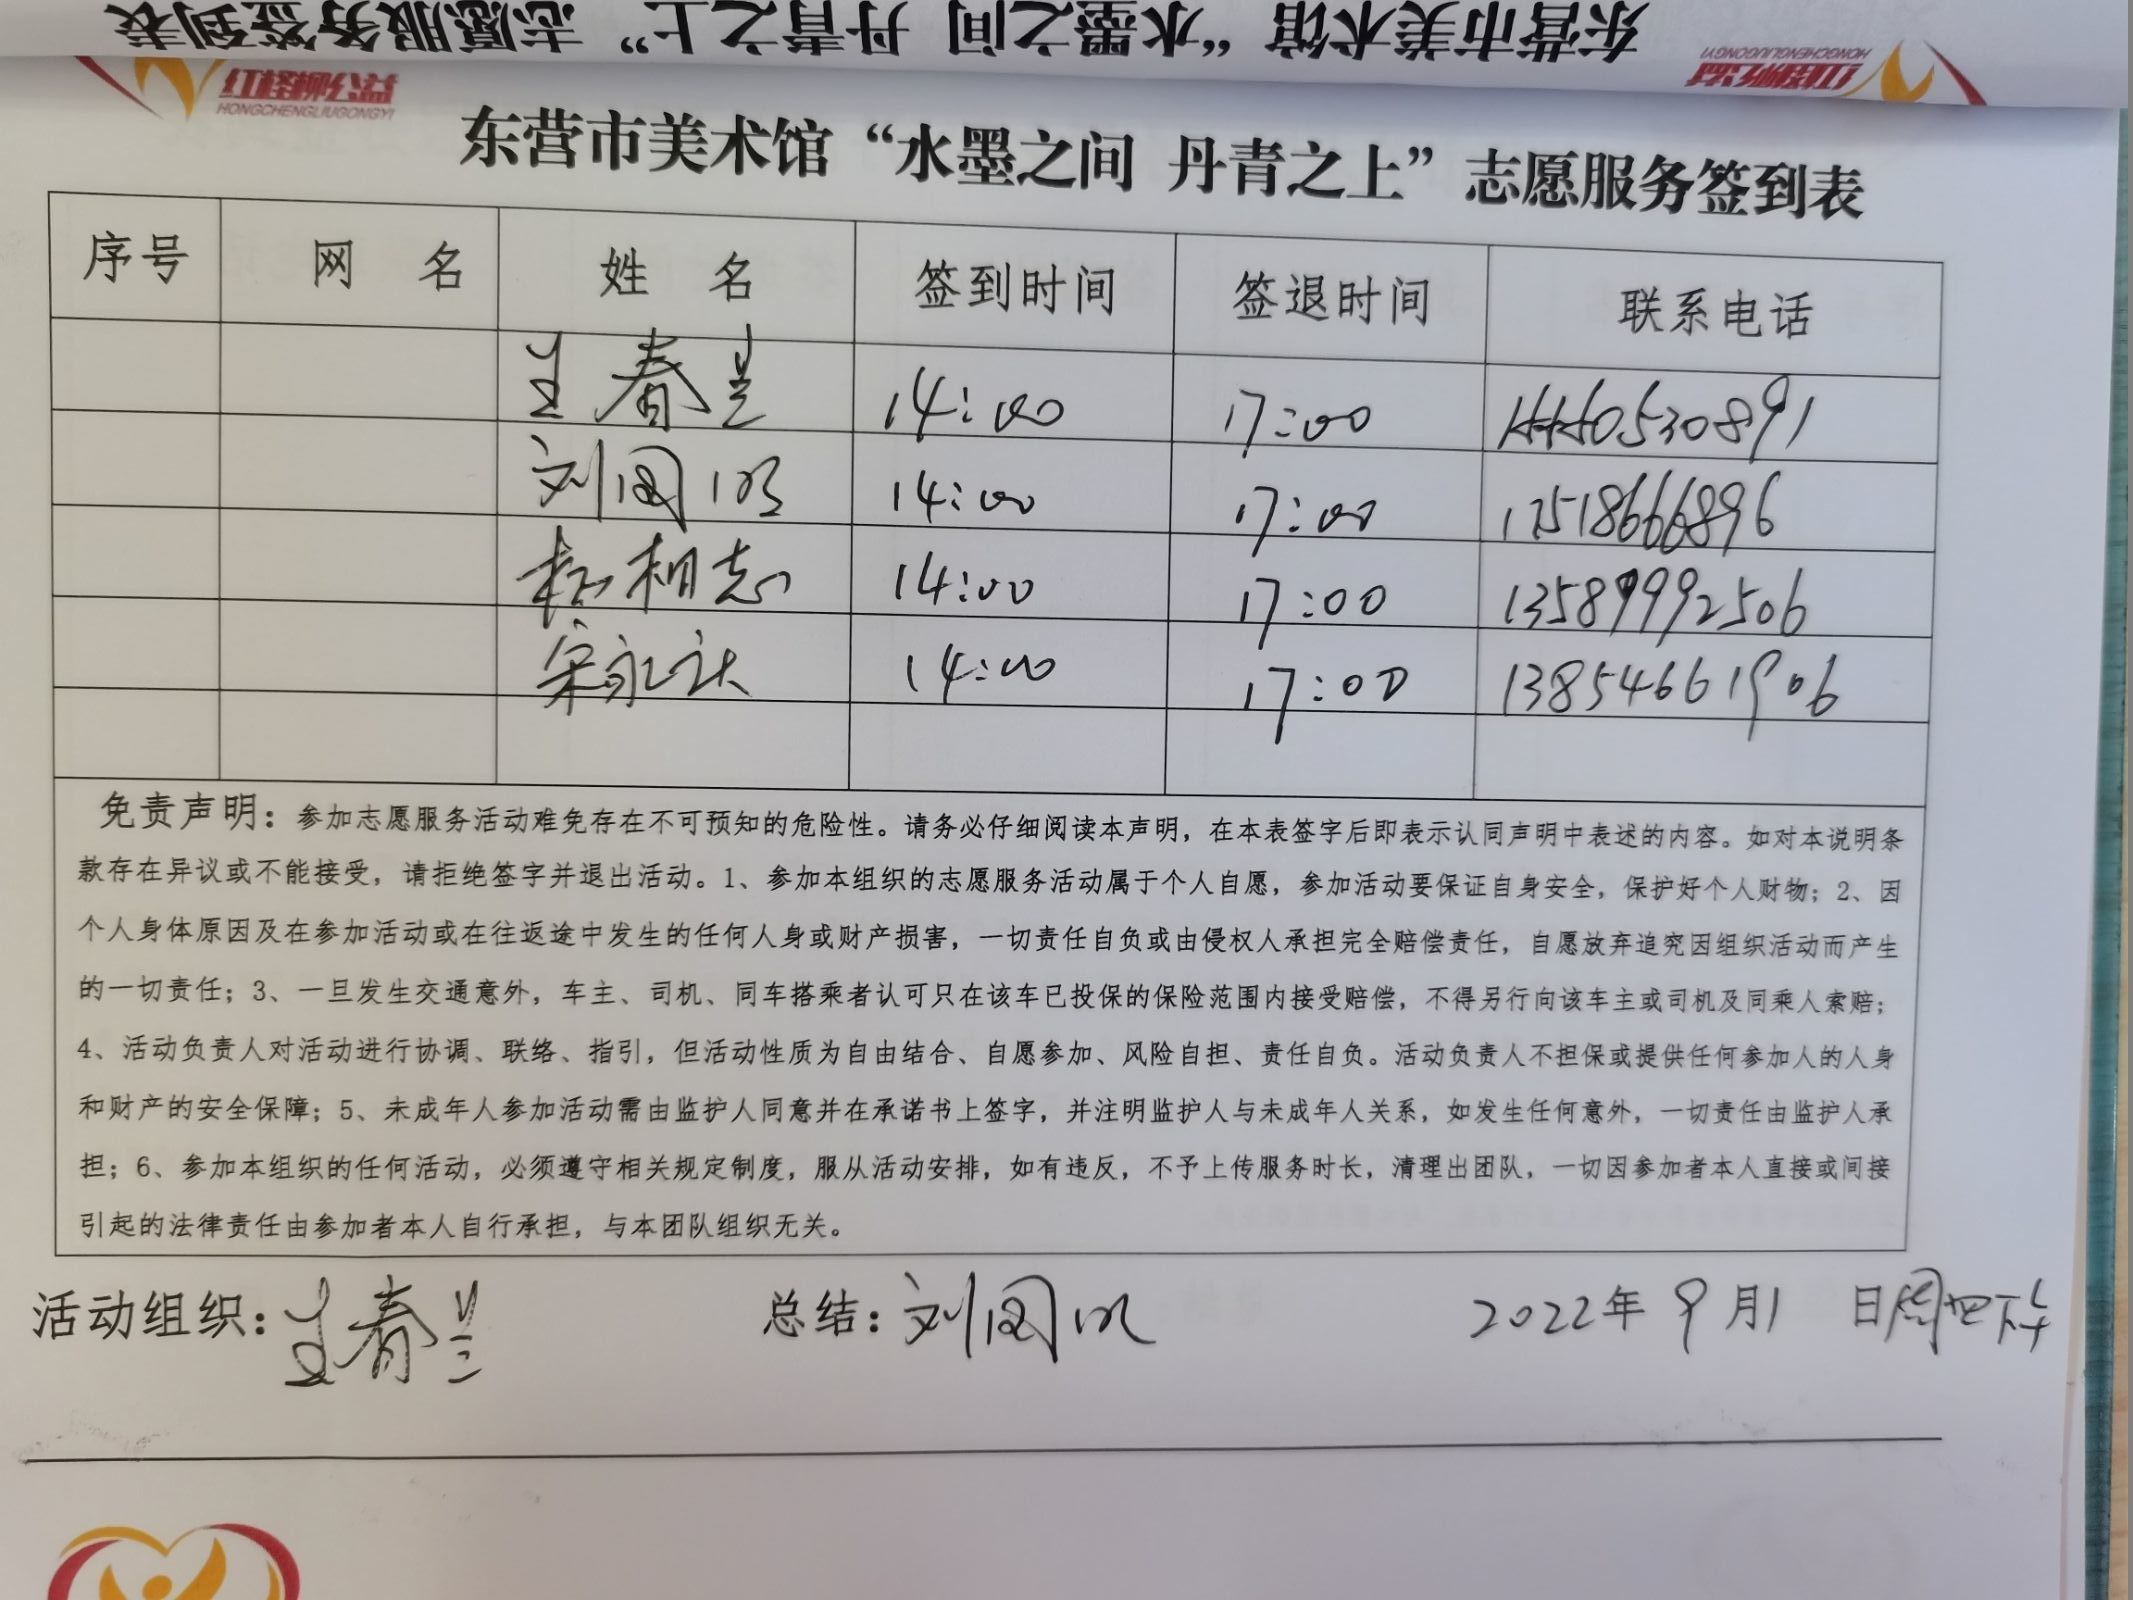 东营市美术馆“水墨之间 丹青之上”志愿服务签到表
红柽柳公益
HONGCHENGLIUGONGYI
红柽柳公益
HONGCHENGLIUGONGYI
东营市美术馆“水墨之间 丹青之上”志愿服务签到表
序号 网 名 姓 名 签到时间 签退时间 联系电话
王春兰 14:00 17:00
刘国明 14:00 17:00
相志 14:00 17:00 13589992506
宋永 14:00 17:00 13854661906
免责声明：参加志愿服务活动难免存在不可预知的危险性。请务必仔细阅读本声明，在本表签字后即表示认同声明中表述的内容。如对本说明条
款存在异议或不能接受，请拒绝签字并退出活动。1、参加本组织的志愿服务活动属于个人自愿，参加活动要保证自身安全，保护好个人财物；2、因
个人身体原因及在参加活动或在往返途中发生的任何人身或财产损害，一切责任自负或由侵权人承担完全赔偿责任，自愿放弃追究因组织活动而产生
的一切责任；3、一旦发生交通意外，车主、司机、同车搭乘者认可只在该车已投保的保险范围内接受赔偿，不得另行向该车主或司机及同乘人索赔；
4、活动负责人对活动进行协调、联络、指引，但活动性质为自由结合、自愿参加、风险自担、责任自负。活动负责人不担保或提供任何参加人的人身
和财产的安全保障；5、未成年人参加活动需由监护人同意并在承诺书上签字，并注明监护人与未成年人关系，如发生任何意外，一切责任由监护人承
担；6、参加本组织的任何活动，必须遵守相关规定制度，服从活动安排，如有违反，不予上传服务时长，清理出团队，一切因参加者本人直接或间接
引起的法律责任由参加者本人自行承担，与本团队组织无关。
活动组织：王春兰 总结：刘国明 2022年 9月1 日周四下午